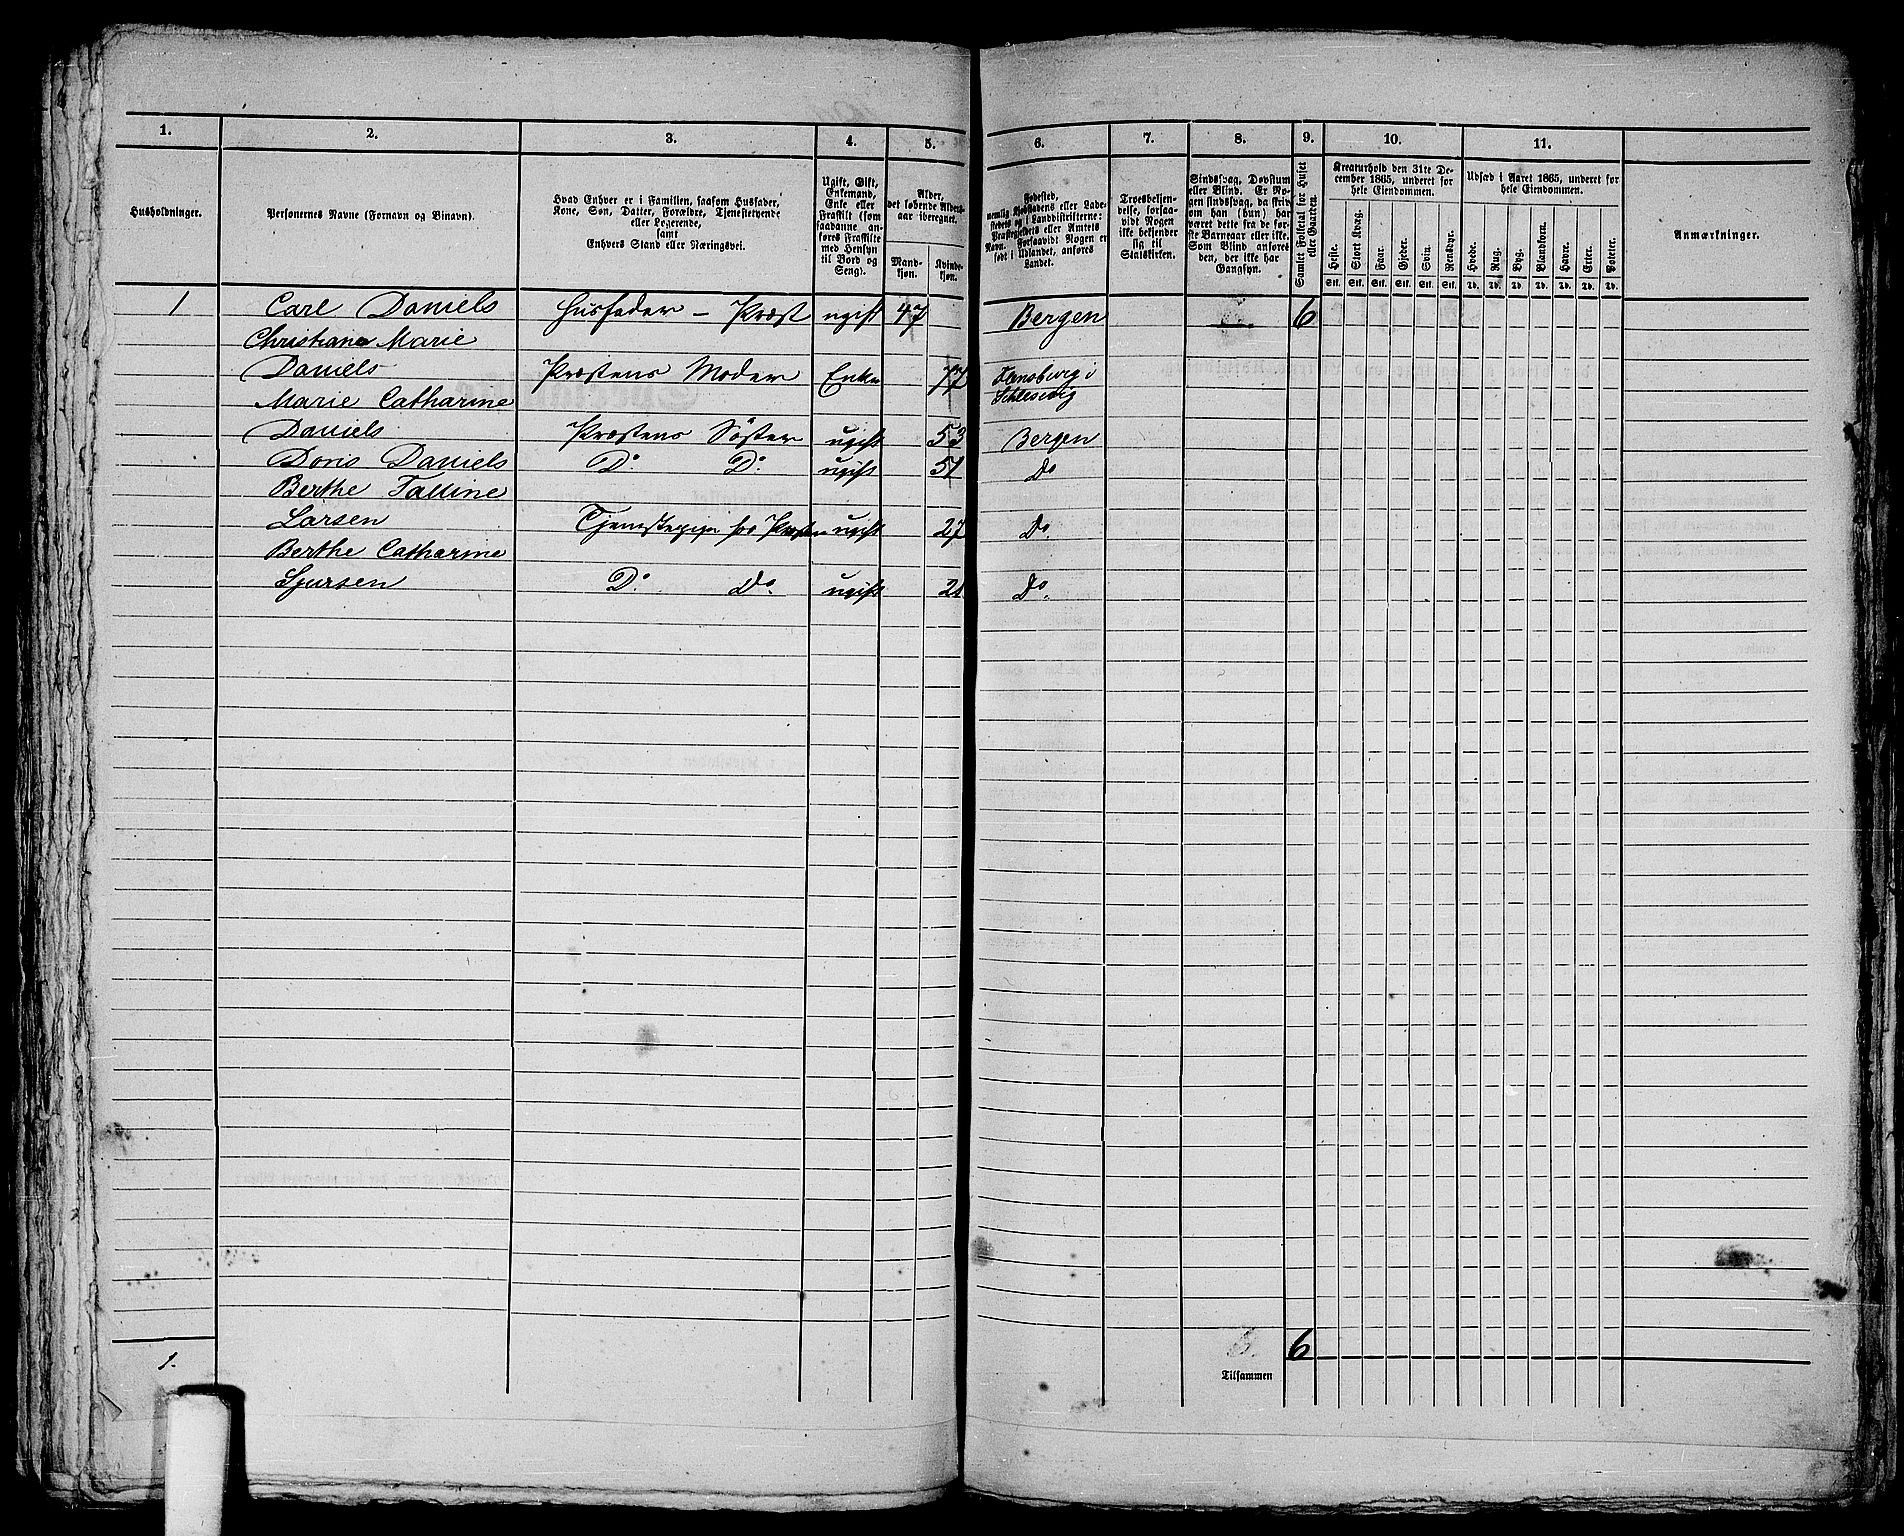 1. 2. 3. 4. 5. 6. 7. 8. 9. 10. 11.
Husholdninger.
Personernes Navne (Fornavn og Binavn).
Hvad Enhver er i Familien, saasom Husfader,
Kone, Søn, Datter, Forældre, Tjenestetyende
eller Logerende,
samt
Enhvers Stand eller Næringsvei.
Ugift, Gift,
Enkemand,
Enke eller
Fraskilt (som
saadanne an-
føres Fraskilte
med Hensyn
til Bord og
Seng).
Alder,
det løbende Alders-
aar iberegnet.
Mand-
kjøn.
Kvinde-
kjøn.
Fødested,
nemlig Kjøbstadens eller Lade-
stedets og i Landdistrikterne:
Præstegjeldets eller Amtets
Navn. Forsaavidt Nogen er
født i Udlandet, anføres
Landet.
Troesbekjen-
delse, forsaa-
vidt Nogen
ikke bekjender
sig til
Statskirken.
Sindssvag, Døvstum
eller Blind. Er No-
gen sindssvag, da skriv
om han (hun) har
været dette fra de før-
ste Barneaar eller ikke.
Som Blind anføres
den, der ikke har
Gangsyn.
Samlet Folketal for Huset
eller Gaarden.
Kreaturhold den 31te De-
cember 1865, underet for
hele Eiendommen.
Heste. Stort Kvæg. Faar. Gjeder. Svin. Rensdyr.
Stk. Stk. Stk. Stk. Stk. Stk.
Udsæd i Aaret 1865, underet for
hele Eiendommen.
Hvede. Rug. Byg. Blandkorn. Havre. Erter. Poteter.
Td. Td. Td. Td. Td. Td. Td.
Anmærkninger.
1 Carl Daniels Husfader – Præst ugift 47 Bergen 6
Christiane Marie
Daniels Præstens Moder Enke 77 Flensburg i
Schlesvig
Marie Catharine
Daniels Præstens Søster ugift 53 Bergen
Doris Daniels Do Do ugift 51 Do
Berthe Talline
Larsen Tjenestepige hos Præsten ugift 27 Do
Berthe Catharine
Sjursen Do Do ugift 21 Do.
1.
6
Tilsammen